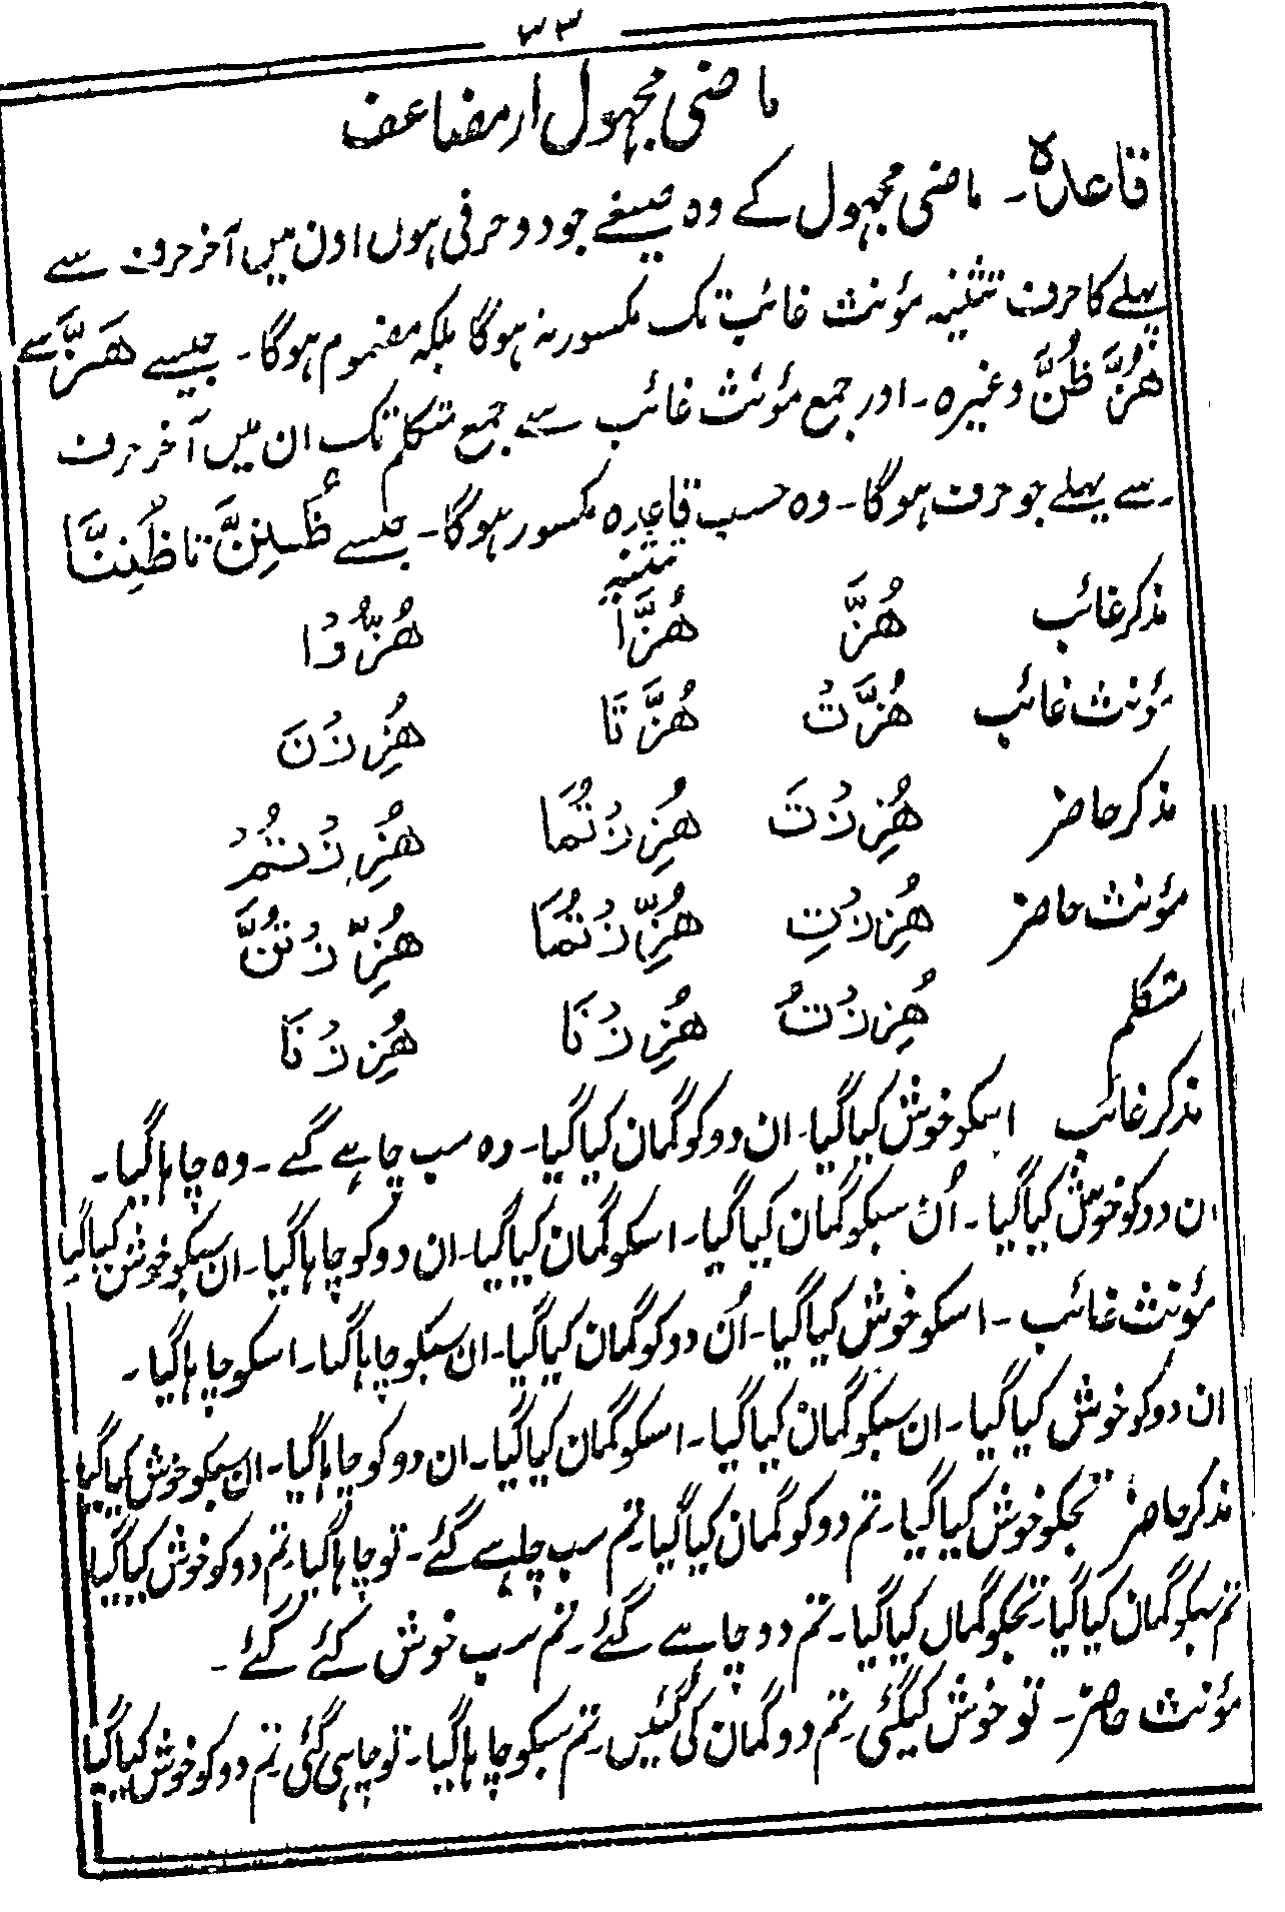 ۳۳
ماضی مجہول از مضاعف
قاعدہ۔ ماضی مجہول کے وہ صیغے جو دو حرفی ہوں اون میں آخر حرف سے
پہلے کا حرف تثنیہ مؤنث غائب تک مکسور نہ ہوگا بلکہ مضموم ہوگا۔ جیسے هَزَّ سے
هُزَّ ظُنَّ وغیرہ۔ اور جمع مؤنث غائب سے جمع متکلم تک ان میں آخر حرف
سے پہلے جو حرف ہوگا۔ وہ حسب قاعدہ مکسور ہوگا۔ جیسے ظُنِنَّ تا ظُنِنَّا
تثنیہ
مذکر غائب هُزَّ هُزَّا هُزُّوْا
مؤنث غائب هُزَّتْ هُزَّتَا هُزِزْنَ
مذکر حاضر هُزِزْتَ هُزِزْتُمَا هُزِزْتُمْ
مؤنث حاضر هُزِزْتِ هُزِّزْتُمَا هُزِّزْتُنَّ
متکلم هُزِزْتُ هُزِزْنَا هُزِزْنَا
مذکر غائب اسکو خوش کیا گیا۔ ان دو کو گمان کیا گیا۔ وہ سب چاہے گے۔ وہ چاہا گیا۔
ان دو کو خوش کیا گیا۔ اُن سبکو گمان کیا گیا۔ اسکو گمان کیا گیا۔ ان دو کو چاہا گیا۔ ان سبکو خوش کیا گیا
مؤنث غائب۔ اسکو خوش کیا گیا۔ اُن دو کو گمان کیا گیا۔ ان سبکو چاہا گیا۔ اسکو چاہا گیا۔
ان دو کو خوش کیا گیا۔ ان سبکو گمان کیا گیا۔ اسکو گمان کیا گیا۔ ان دو کو چاہا گیا۔ ان سبکو خوش کیا گیا
مذکر حاضر تجکو خوش کیا گیا۔ تم دو کو گمان کیا گیا۔ تم سب چاہے گئے۔ تو چاہا گیا۔ تم دو کو خوش کیا گیا
تم سبکو گمان کیا گیا۔ تجکو گماں کیا گیا۔ تم دو چاہے گئے۔ تم سب خوش کئے گئے۔
مؤنث حاضر۔ تو خوش کیگئی۔ تم دو گمان کی گئیں۔ تم سبکو چاہا گیا۔ تو چاہی گئی۔ تم دو کو خوش کیا گیا